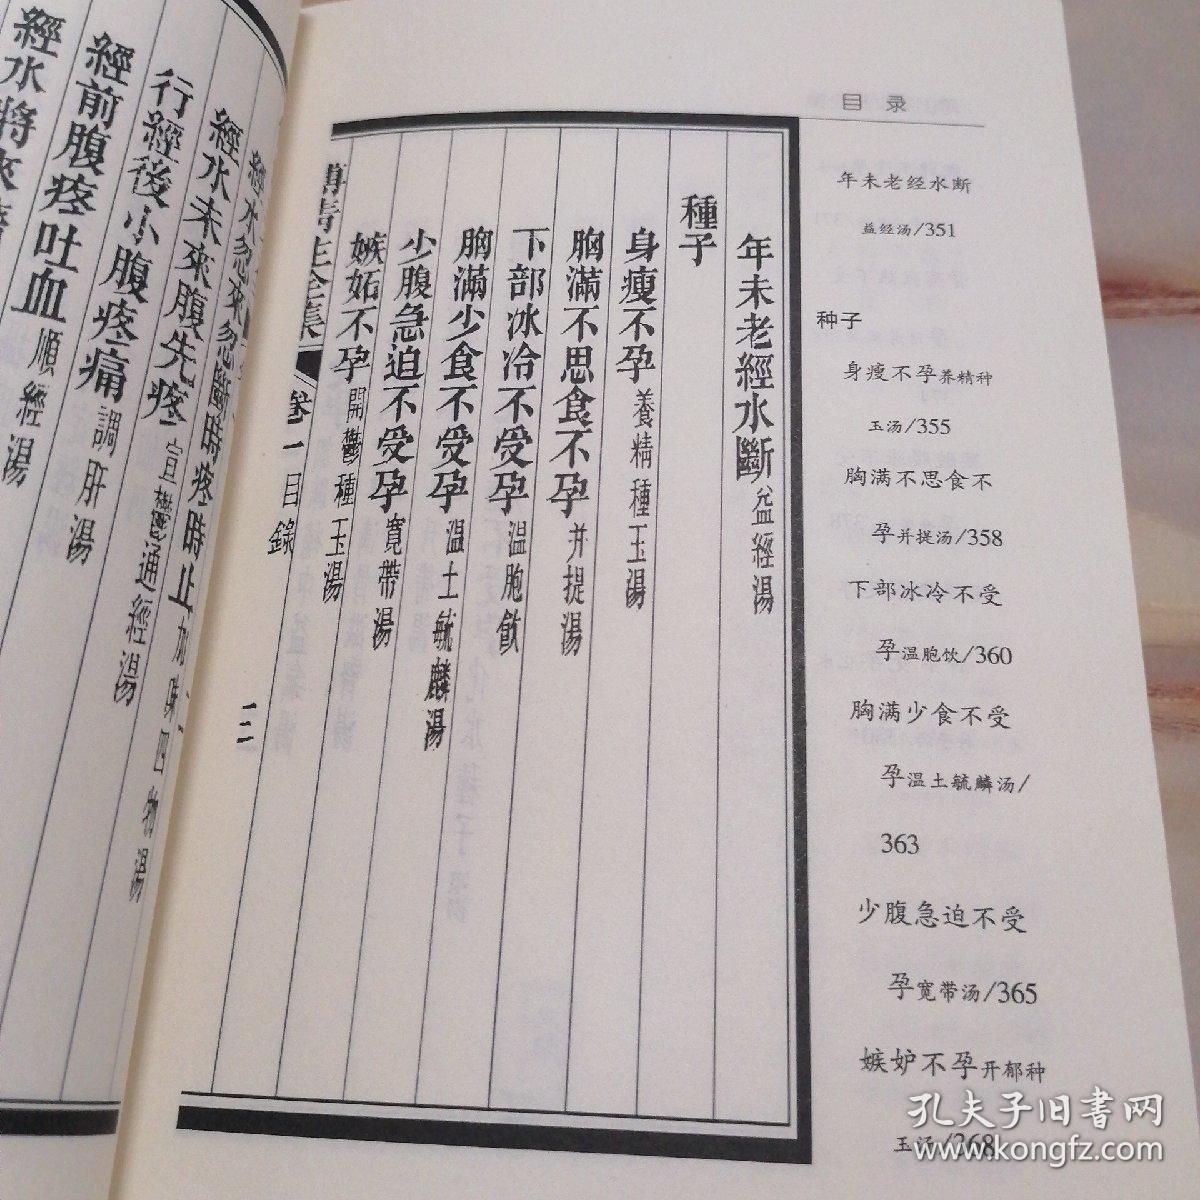 目 录
年未老经水断
益经汤/351
种子
身瘦不孕养精种
玉汤/355
胸满不思食不
孕并提汤/358
下部冰冷不受
孕温胞饮/360
胸满少食不受
孕温土毓麟汤/
363
少腹急迫不受
孕宽带汤/365
嫉妒不孕开郁种
玉汤/368
年未老經水斷益經湯
種子
身瘦不孕養精種玉湯
胸滿不思食不孕并提湯
下部冰冷不受孕温胞飲
胸滿少食不受孕温土毓麟湯
少腹急迫不受孕寬帶湯
嫉妬不孕開鬱種玉湯
傅青主全集 卷一目錄 三
經水忽來忽斷時疼時止加味四物湯
經水未來腹先疼宣鬱通經湯
行經後小腹疼痛調肝湯
經前腹疼吐血順經湯
經水將來
孔夫子旧书网
www.kongfz.com